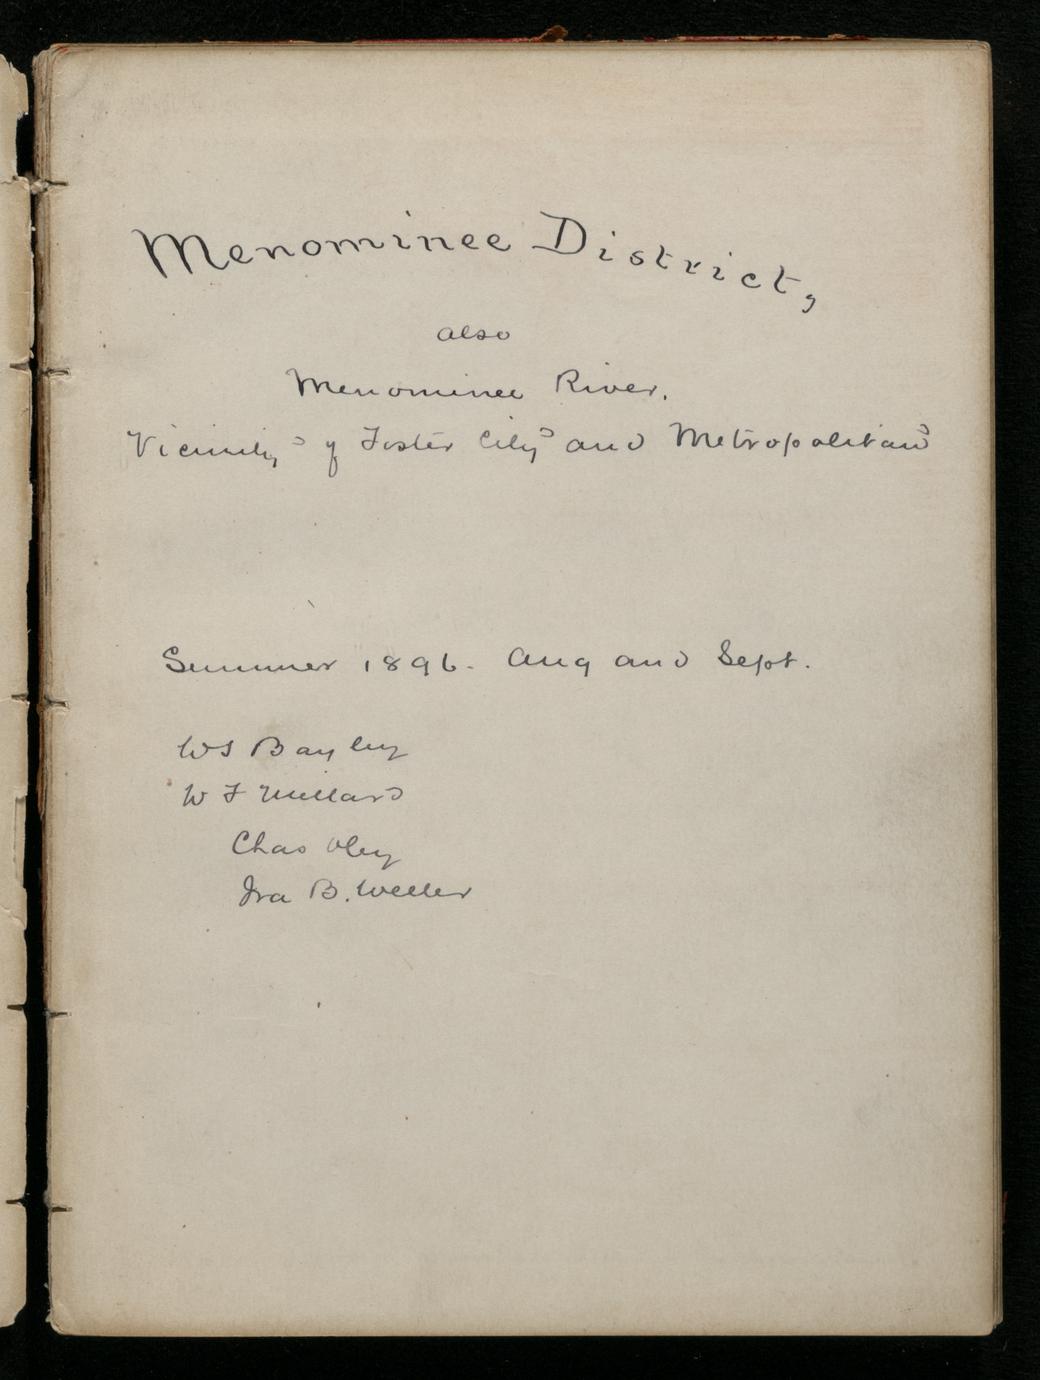 Menominee District,
also
Menominee River.
Vicinity of Foster City and Metropolitan
Summer 1896. Aug and Sept.
WS Bayley
W F Millard
Chas Oley
Ira B. Weller